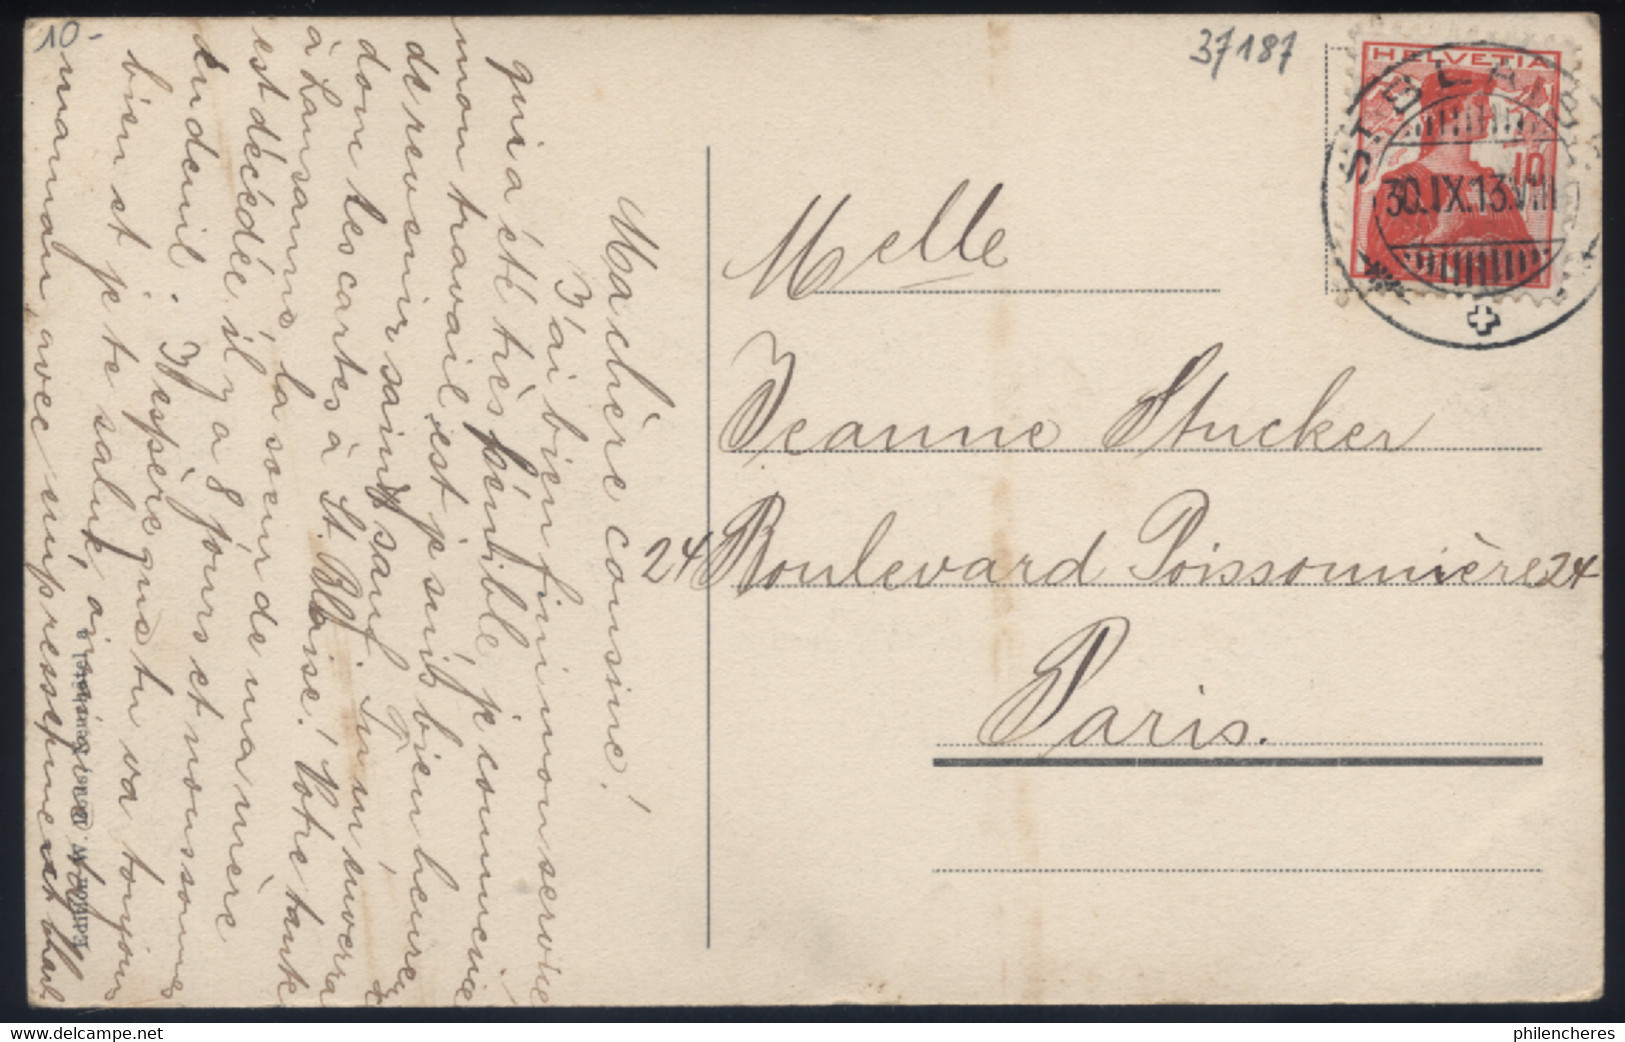 10-
37187
HELVETIA
10
ST. BLAISE
30.IX.13.VIII
Melle
Jeanne Stucker
24 Boulevard Poissonnière 24
Paris.
Ma chère cousine!
J'ai bien fini mon service
qui a été très pénible, je commence
mon travail, est je suis bien heureux
de revenir sain et sauf. Tu m'enverra
dont les cartes à St. Blaise! Votre tante
à Lausanne la soeur de ma mère
est décédée il y a 8 jours et nous sommes
en deuil. J'espère que tu va toujours
bien et je te salue, ainsi que
maman avec empressement
Edition W.
philencheres
www.delcampe.net